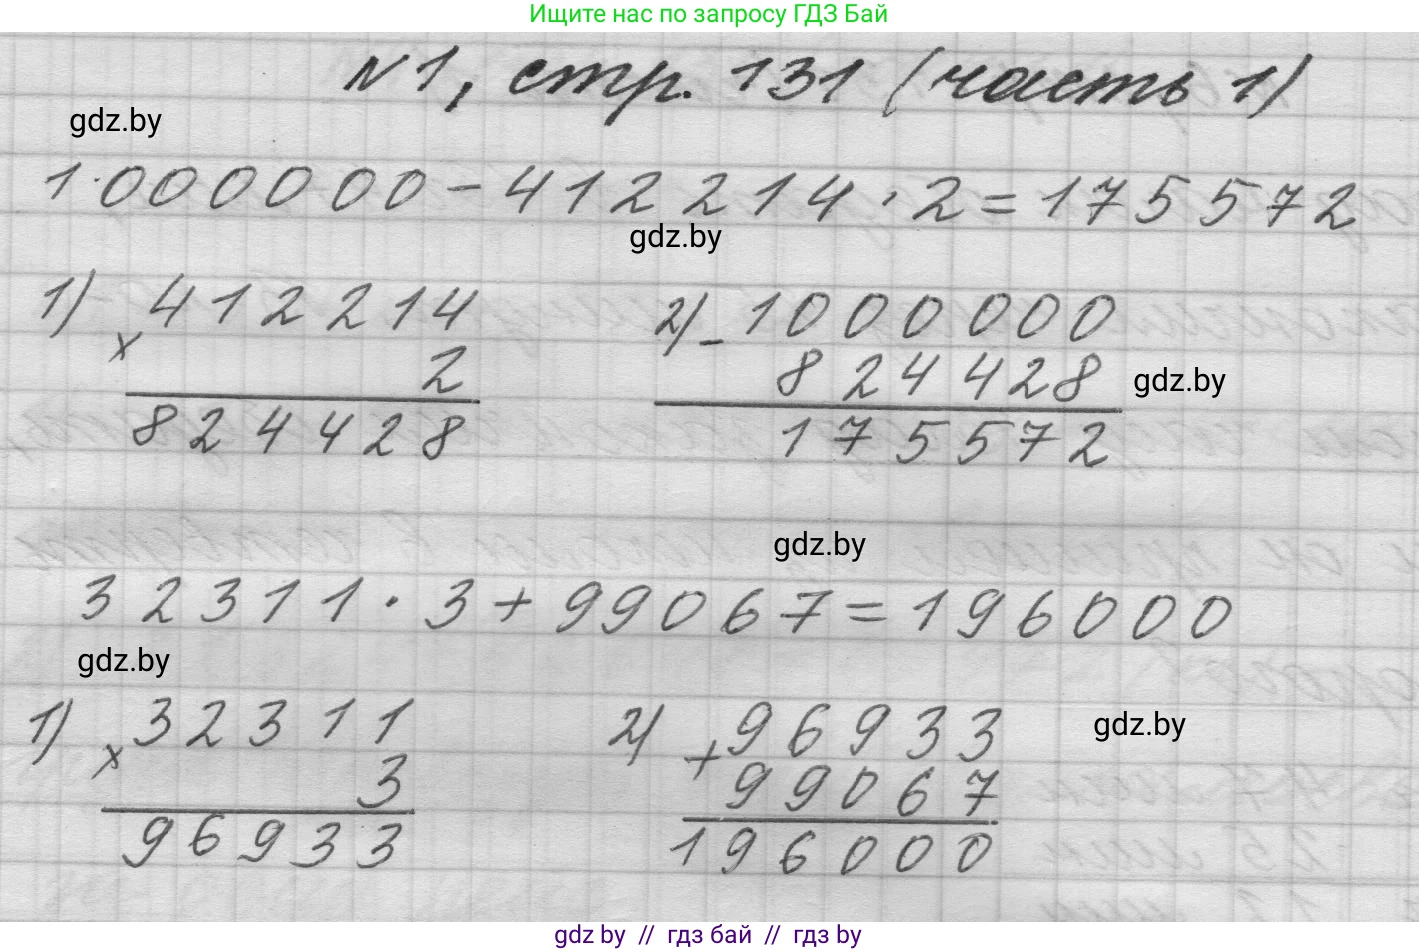 Ищите нас по запросу ГДЗ Бай
N1, стр. 131 (часть 1)
gdz.by
1000000 - 412214 · 2 = 175572
gdz.by
1) 412214
×
2
824428
2) 1000000
-
824428
gdz.by
175572
gdz.by
32311 · 3 + 99067 = 196000
gdz.by
1) 32311
×
3
96933
2) 96933
+
99067
196000
gdz.by
gdz by // гдз бай // гдз by